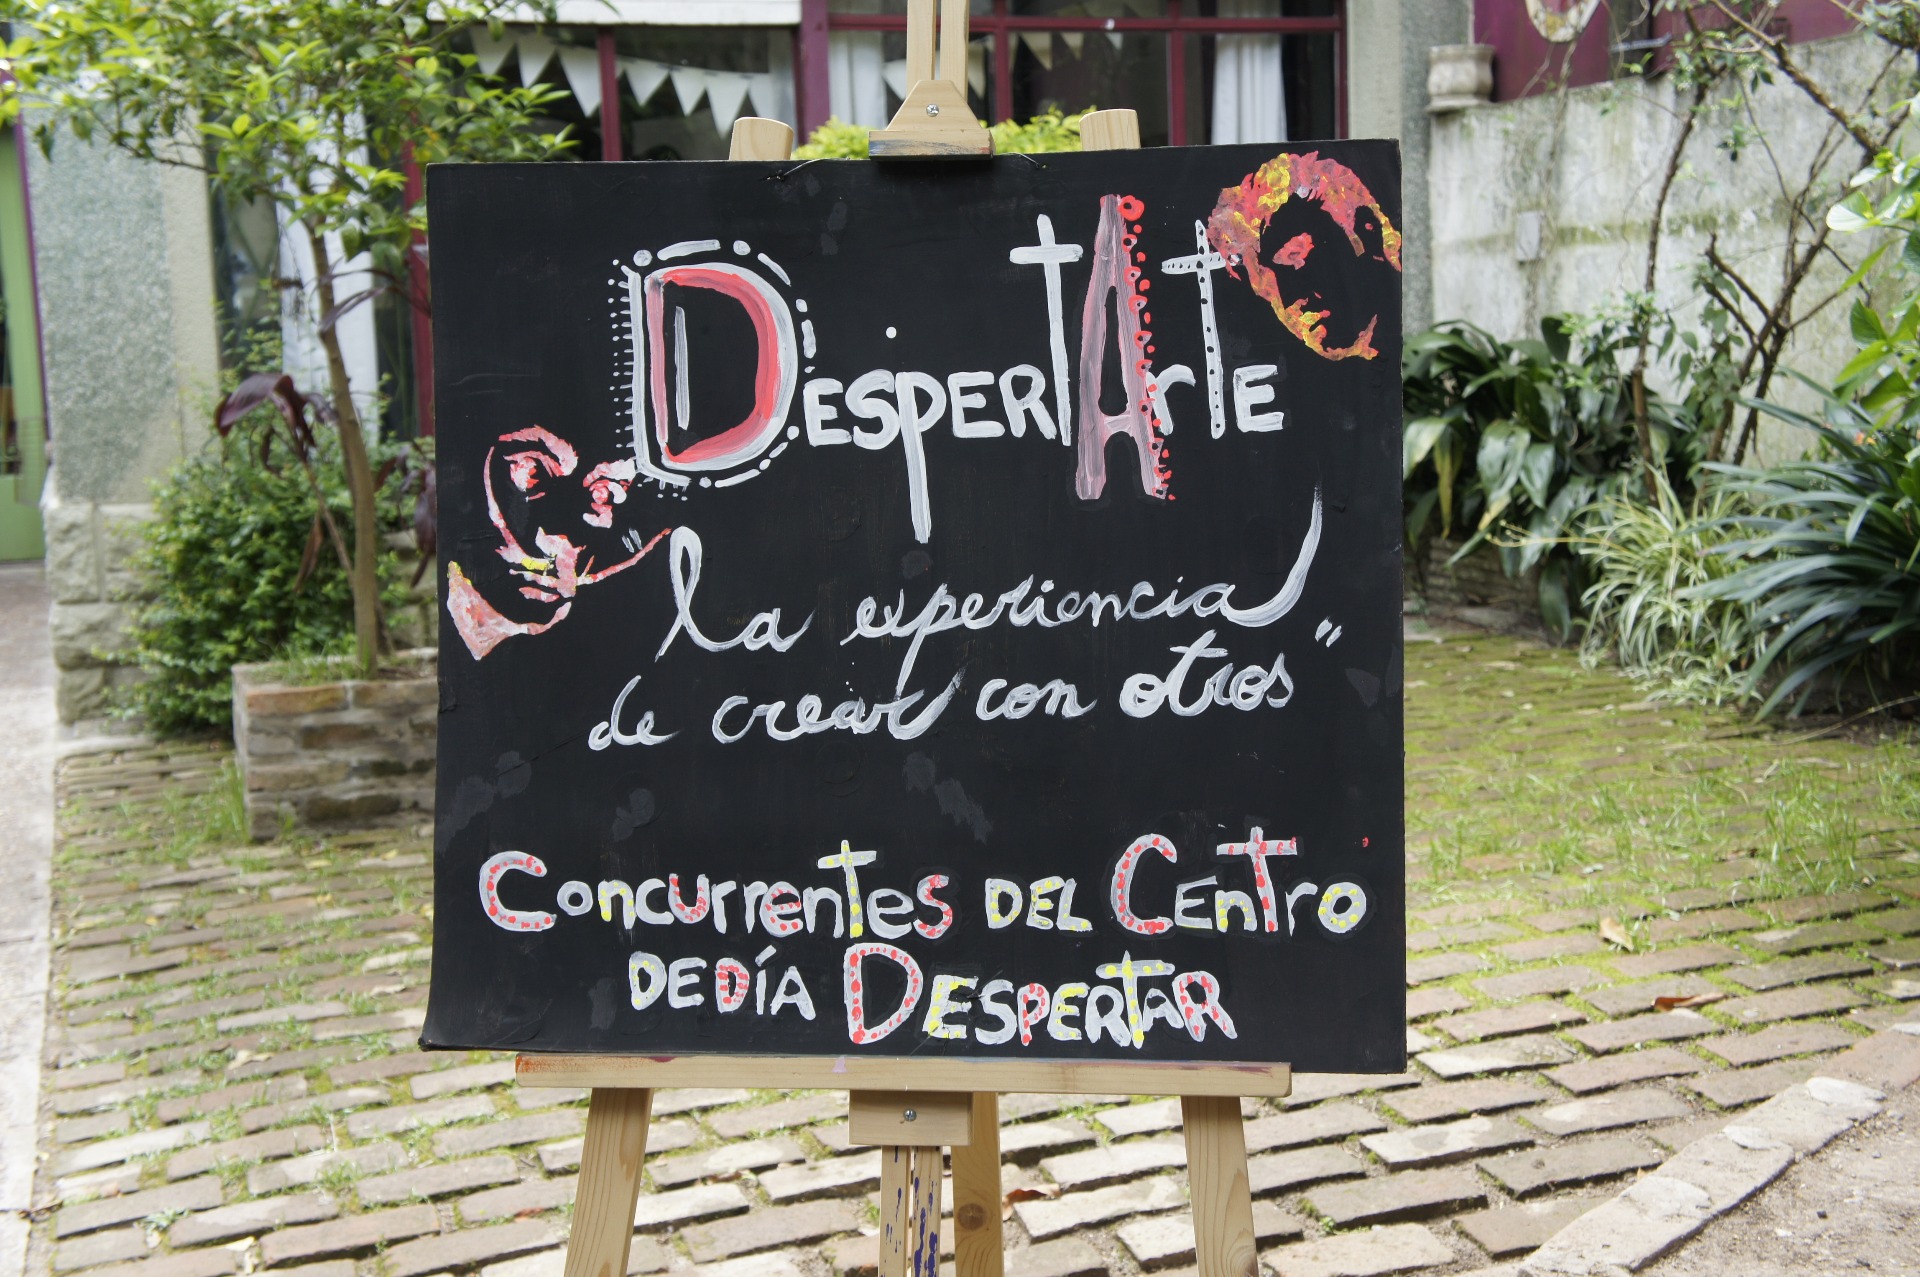 DespertArte
la experiencia
de crear con otros"
Concurrentes del Centro
de Día Despertar